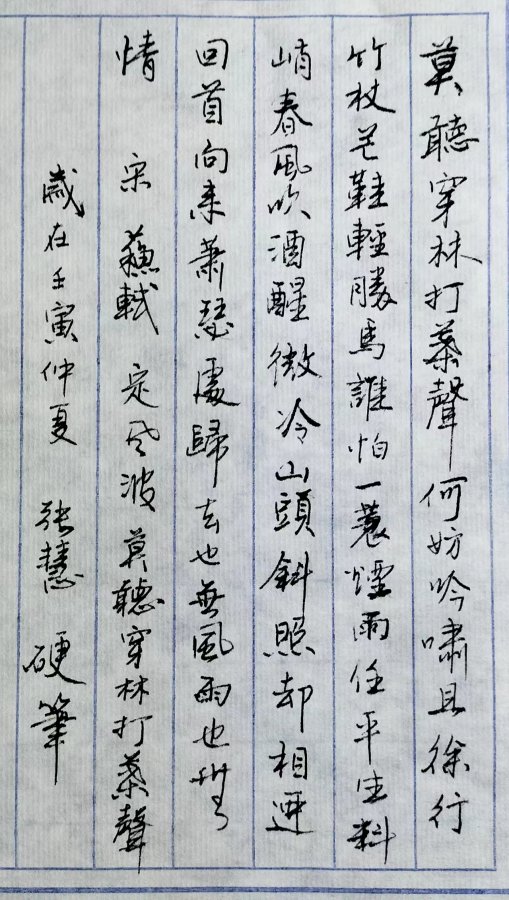 莫聽穿林打葉聲何妨吟嘯且徐行
竹杖芒鞋輕勝馬誰怕一蓑煙雨任平生料
峭春風吹酒醒微冷山頭斜照却相迎
回首向來蕭瑟處歸去也無風雨也無
情 宋 蘇軾 定风波莫聽穿林打葉聲
歲在壬寅仲夏 張慧 硬筆